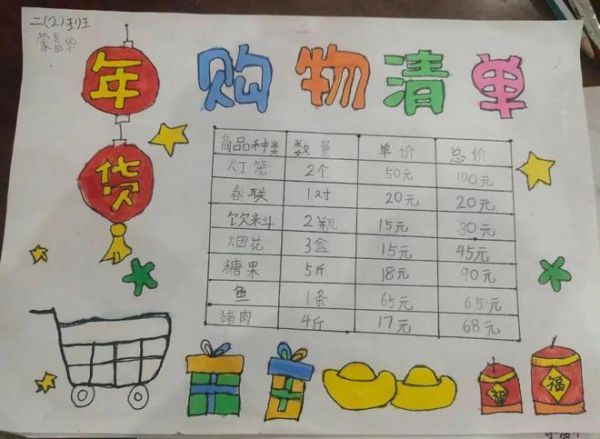 二(2)班
年货
购物清单
商品种类 数量 单价 总价
灯笼 2个 50元 100元
春联 1对 20元 20元
饮料 2瓶 15元 30元
烟花 3盒 15元 45元
糖果 5斤 18元 90元
鱼 1条 65元 65元
猪肉 4斤 17元 68元
福
福